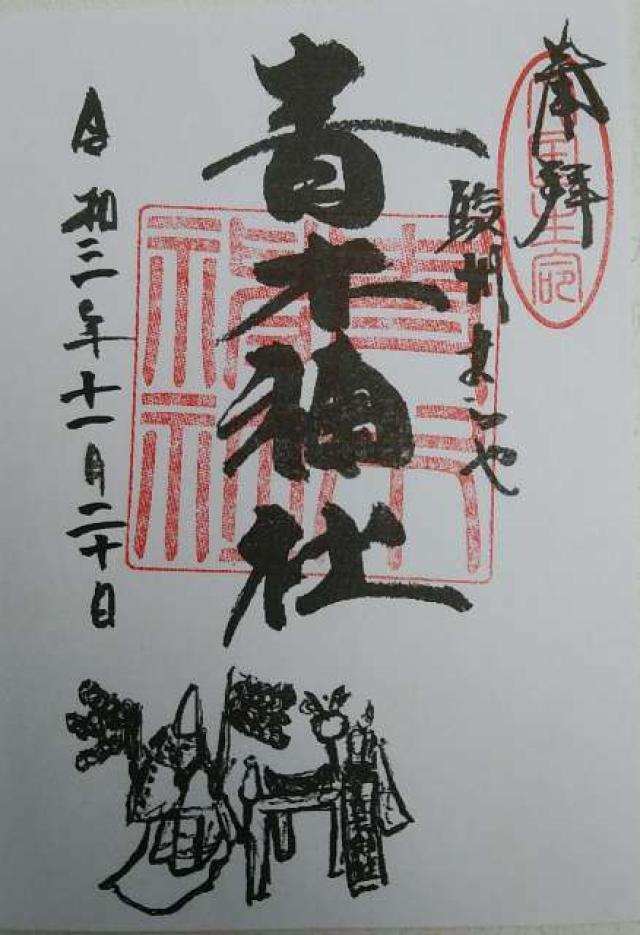 奉拝
駿州まふや
青木神社
令和三年十一月二十日
青木神社